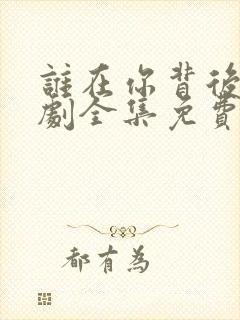 誰在你背後
劇全集免費
都有為